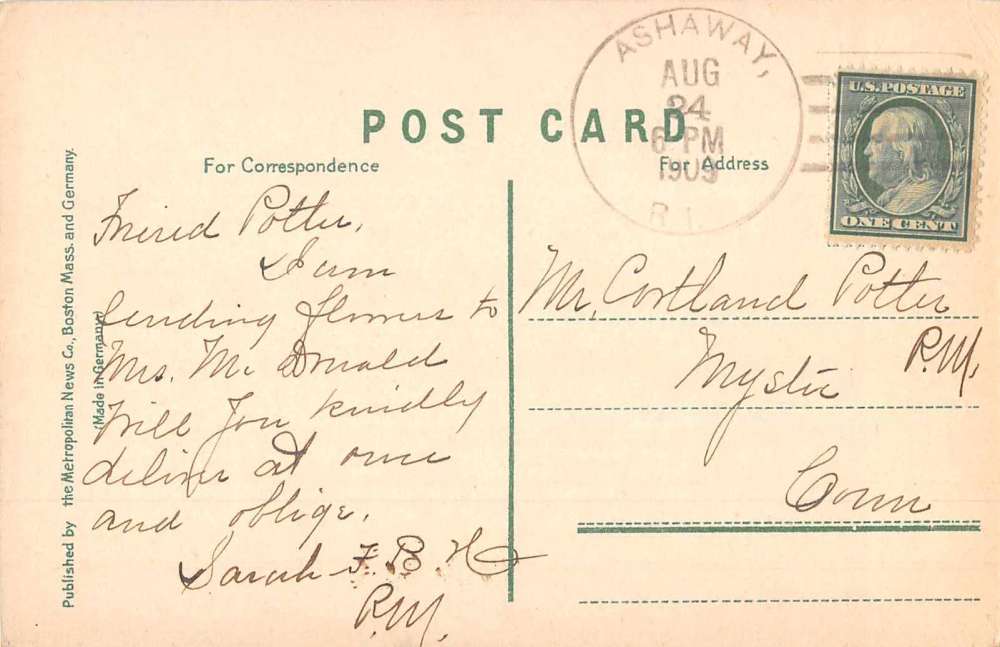 ASHAWAY,
AUG
24
6-PM
1909
R.I.
U.S. POSTAGE
ONE CENT
POST CARD
For Correspondence
For Address
Friend Potter,
I am
sending flowers to
Mrs. McDonald
Will You kindly
deliver at once
and oblige.
Sarah F. B. H
P.M.
Mr. Cortland Potter
P.M.
Mystic
Conn
Published by the Metropolitan News Co., Boston Mass. and Germany.
(Made in Germany)